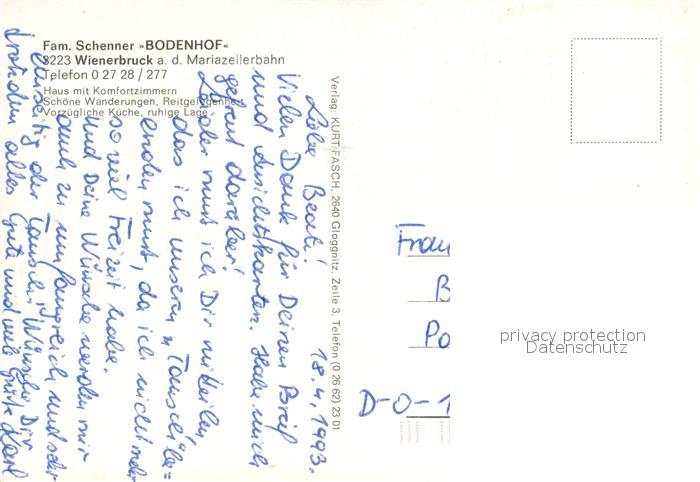 Fam. Schenner »BODENHOF«
3223 Wienerbruck a. d. Mariazellerbahn
Telefon 0 27 28 / 277
Haus mit Komfortzimmern
Schöne Wanderungen, Reitgelegenheit
Vorzügliche Küche, ruhige Lage
Verlag: KURT FASCH, 2640 Gloggnitz, Zeile 3, Telefon (0 26 62) 23 01
18.4.1993.
Liebe Beati!
Vielen Dank für Deinen Brief
und Ansichtskarten. Habe mich
gefreut darüber!
Leider muß ich Dir mitteilen,
das ich unseren "Tausch" be=
enden muß, da ich nicht mehr
so viel Freizeit habe.
und Deine Wünsche werden mir
auch zu umfangreich und sehr
einseitig der Tausch! Wünsche Dir
trotzdem alles Gute und viele Grüße Karl
Frau
B
Po
D-O-1
privacy protection
Datenschutz